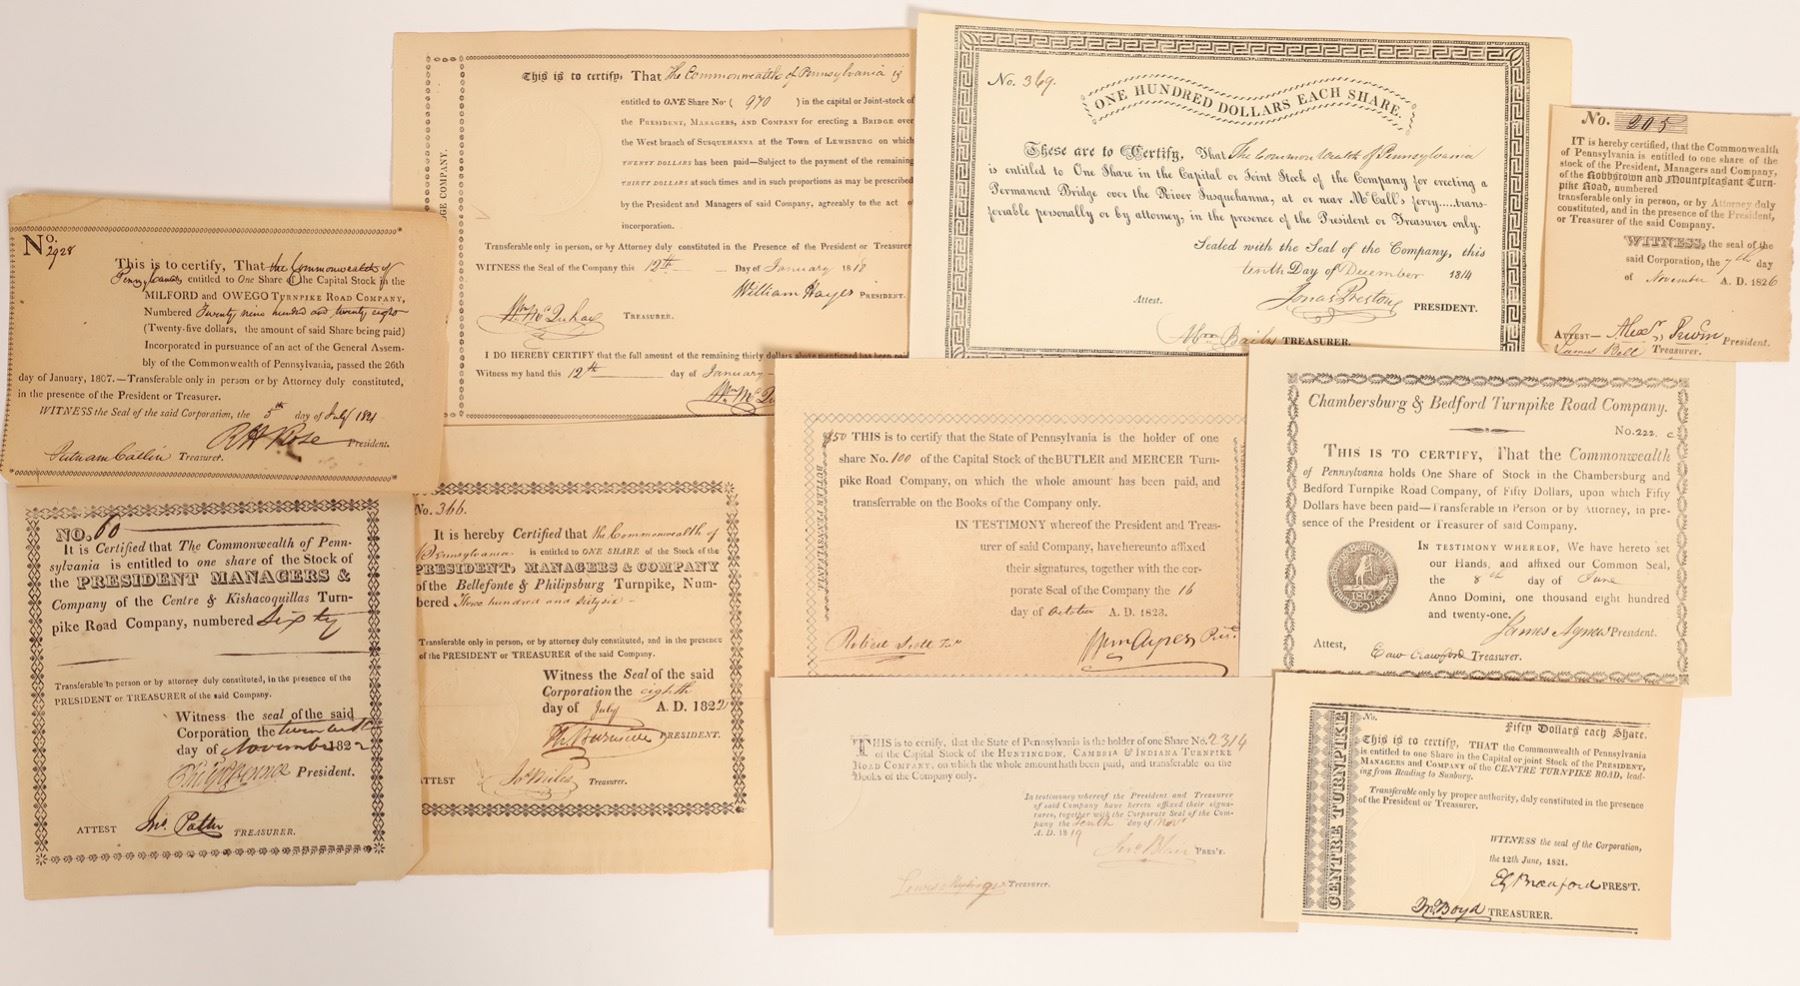 No.
2928
This is to certify, That the Commonwealth of
Pennsylvania entitled to One Share of the Capital Stock in the
MILFORD and OWEGO TURNPIKE ROAD COMPANY,
Numbered Twenty nine hundred and twenty eight
(Twenty-five dollars, the amount of said Share being paid)
Incorporated in pursuance of an act of the General Assem-
bly of the Commonwealth of Pennsylvania, passed the 26th
day of January, 1807.—Transferable only in person or by Attorney duly constituted,
in the presence of the President or Treasurer.
WITNESS the Seal of the said Corporation, the 5th day of July 1821
R H Rose President.
Putnam Catlin Treasurer.
GE COMPANY.
This is to certify, That The Commonwealth of Pennsylvania is
entitled to ONE Share No. ( 970 ) in the capital or Joint-stock of
the PRESIDENT, MANAGERS, AND COMPANY for erecting a BRIDGE over
the West branch of SUSQUEHANNA at the Town of LEWISBURG on which
TWENTY DOLLARS has been paid—Subject to the payment of the remaining
THIRTY DOLLARS at such times and in such proportions as may be prescribed
by the President and Managers of said Company, agreeably to the act of
incorporation.
Transferable only in person, or by Attorney duly constituted in the Presence of the President or Treasurer
WITNESS the Seal of the Company this 12th Day of January 1818
William Hayes PRESIDENT.
TREASURER.
I DO HEREBY CERTIFY that the full amount of the remaining thirty dollars above mentioned has been paid
Witness my hand this 12th day of January
No. 369.
ONE HUNDRED DOLLARS EACH SHARE.
These are to Certify, That The Commonwealth of Pennsylvania
is entitled to One Share in the Capital or Joint Stock of the Company for erecting a
Permanent Bridge over the River Susquehanna, at or near McCall's ferry.....trans-
ferable personally or by attorney, in the presence of the President or Treasurer only.
Sealed with the Seal of the Company, this
tenth Day of December 1814
Attest.
Jonas Preston PRESIDENT.
Wm Baily TREASURER.
No. 205
IT is hereby certified, that the Commonwealth
of Pennsylvania is entitled to one share of the
stock of the President, Managers and Company,
of the Robbstown and Mountpleasant Turn-
pike Road, numbered
transferable only in person, or by Attorney duly
constituted, and in the presence of the President,
or Treasurer of the said Company.
WITNESS, the seal of the
said Corporation, the 7th day
of November A. D. 1826
ATTEST— President.
James Bell Treasurer.
NO. 60
It is Certified that The Commonwealth of Penn-
sylvania is entitled to one share of the Stock of
the PRESIDENT MANAGERS &
Company of the Centre & Kishacoquillas Turn-
pike Road Company, numbered Sixty
Transferable in person or by attorney duly constituted, in the presence of the
PRESIDENT or TREASURER of the said Company.
Witness the seal of the said
Corporation the
day of November 1822
President.
ATTEST Jno. Patton TREASURER.
No. 366.
It is hereby Certified that the Commonwealth of
Pennsylvania is entitled to ONE SHARE of the Stock of the
PRESIDENT, MANAGERS & COMPANY
of the Bellefonte & Philipsburg Turnpike, Num-
bered Three hundred and sixty six
Transferable only in person, or by attorney duly constituted, and in the presence
of the PRESIDENT or TREASURER of the said Company.
Witness the Seal of the said
Corporation the eighth
day of July A. D. 1822
PRESIDENT.
ATTEST Treasurer.
BUTLER PENNSYLVANIA
$50 THIS is to certify that the State of Pennsylvania is the holder of one
share No. 100 of the Capital Stock of the BUTLER and MERCER Turn-
pike Road Company, on which the whole amount has been paid, and
transferrable on the Books of the Company only.
IN TESTIMONY whereof the President and Treas-
urer of said Company, have hereunto affixed
their signatures, together with the cor-
porate Seal of the Company the 16
day of October A. D. 1823.
Robert Scott Tr
Wm Ayres Prest.
Chambersburg & Bedford Turnpike Road Company.
No. 222. C
THIS IS TO CERTIFY, That the Commonwealth
of Pennsylvania holds One Share of Stock in the Chambersburg and
Bedford Turnpike Road Company, of Fifty Dollars, upon which Fifty
Dollars have been paid—Transferable in Person or by Attorney, in pre-
sence of the President or Treasurer of said Company.
IN TESTIMONY WHEREOF, We have hereto set
our Hands, and affixed our Common Seal,
the 8th day of June
Anno Domini, one thousand eight hundred
and twenty-one.
James Agnew President.
Attest,
Edw Crawford Treasurer.
THIS is to certify, that the State of Pennsylvania is the holder of one Share No. 2314
of the Capital Stock of the HUNTINGDON, CAMBRIA & INDIANA TURNPIKE
ROAD COMPANY, on which the whole amount hath been paid, and transferable on the
Books of the Company only.
In testimony whereof the President and Treasurer
of said Company have hereto affixed their signa-
tures, together with the Corporate Seal of the Com-
pany the tenth day of Novr
A. D. 1819
Jno Blair PRES'T.
Treasurer.
CENTRE TURNPIKE
No. Fifty Dollars each Share.
This is to certify, THAT the Commonwealth of Pennsylvania
is entitled to one Share in the Capital or joint Stock of the PRESIDENT,
MANAGERS and COMPANY of the CENTRE TURNPIKE ROAD, lead-
ing from Reading to Sunbury.
Transferable only by proper authority, duly constituted in the presence
of the President or Treasurer.
WITNESS the seal of the Corporation,
the 12th June, 1821.
PRES'T.
Boyd TREASURER.